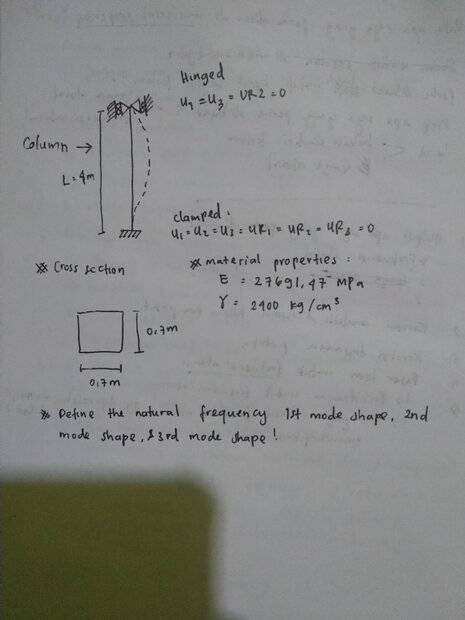 Hinged
U1 = U3 = UR2 = 0
Column →
L = 4m
clamped :
U1 = U2 = U3 = UR1 = UR2 = UR3 = 0
※ Cross section
※ material properties :
E = 27691,47 MPa
γ = 2400 kg/cm³
0,7m
0,7m
※ Define the natural frequency 1st mode shape, 2nd
mode shape, & 3rd mode shape !